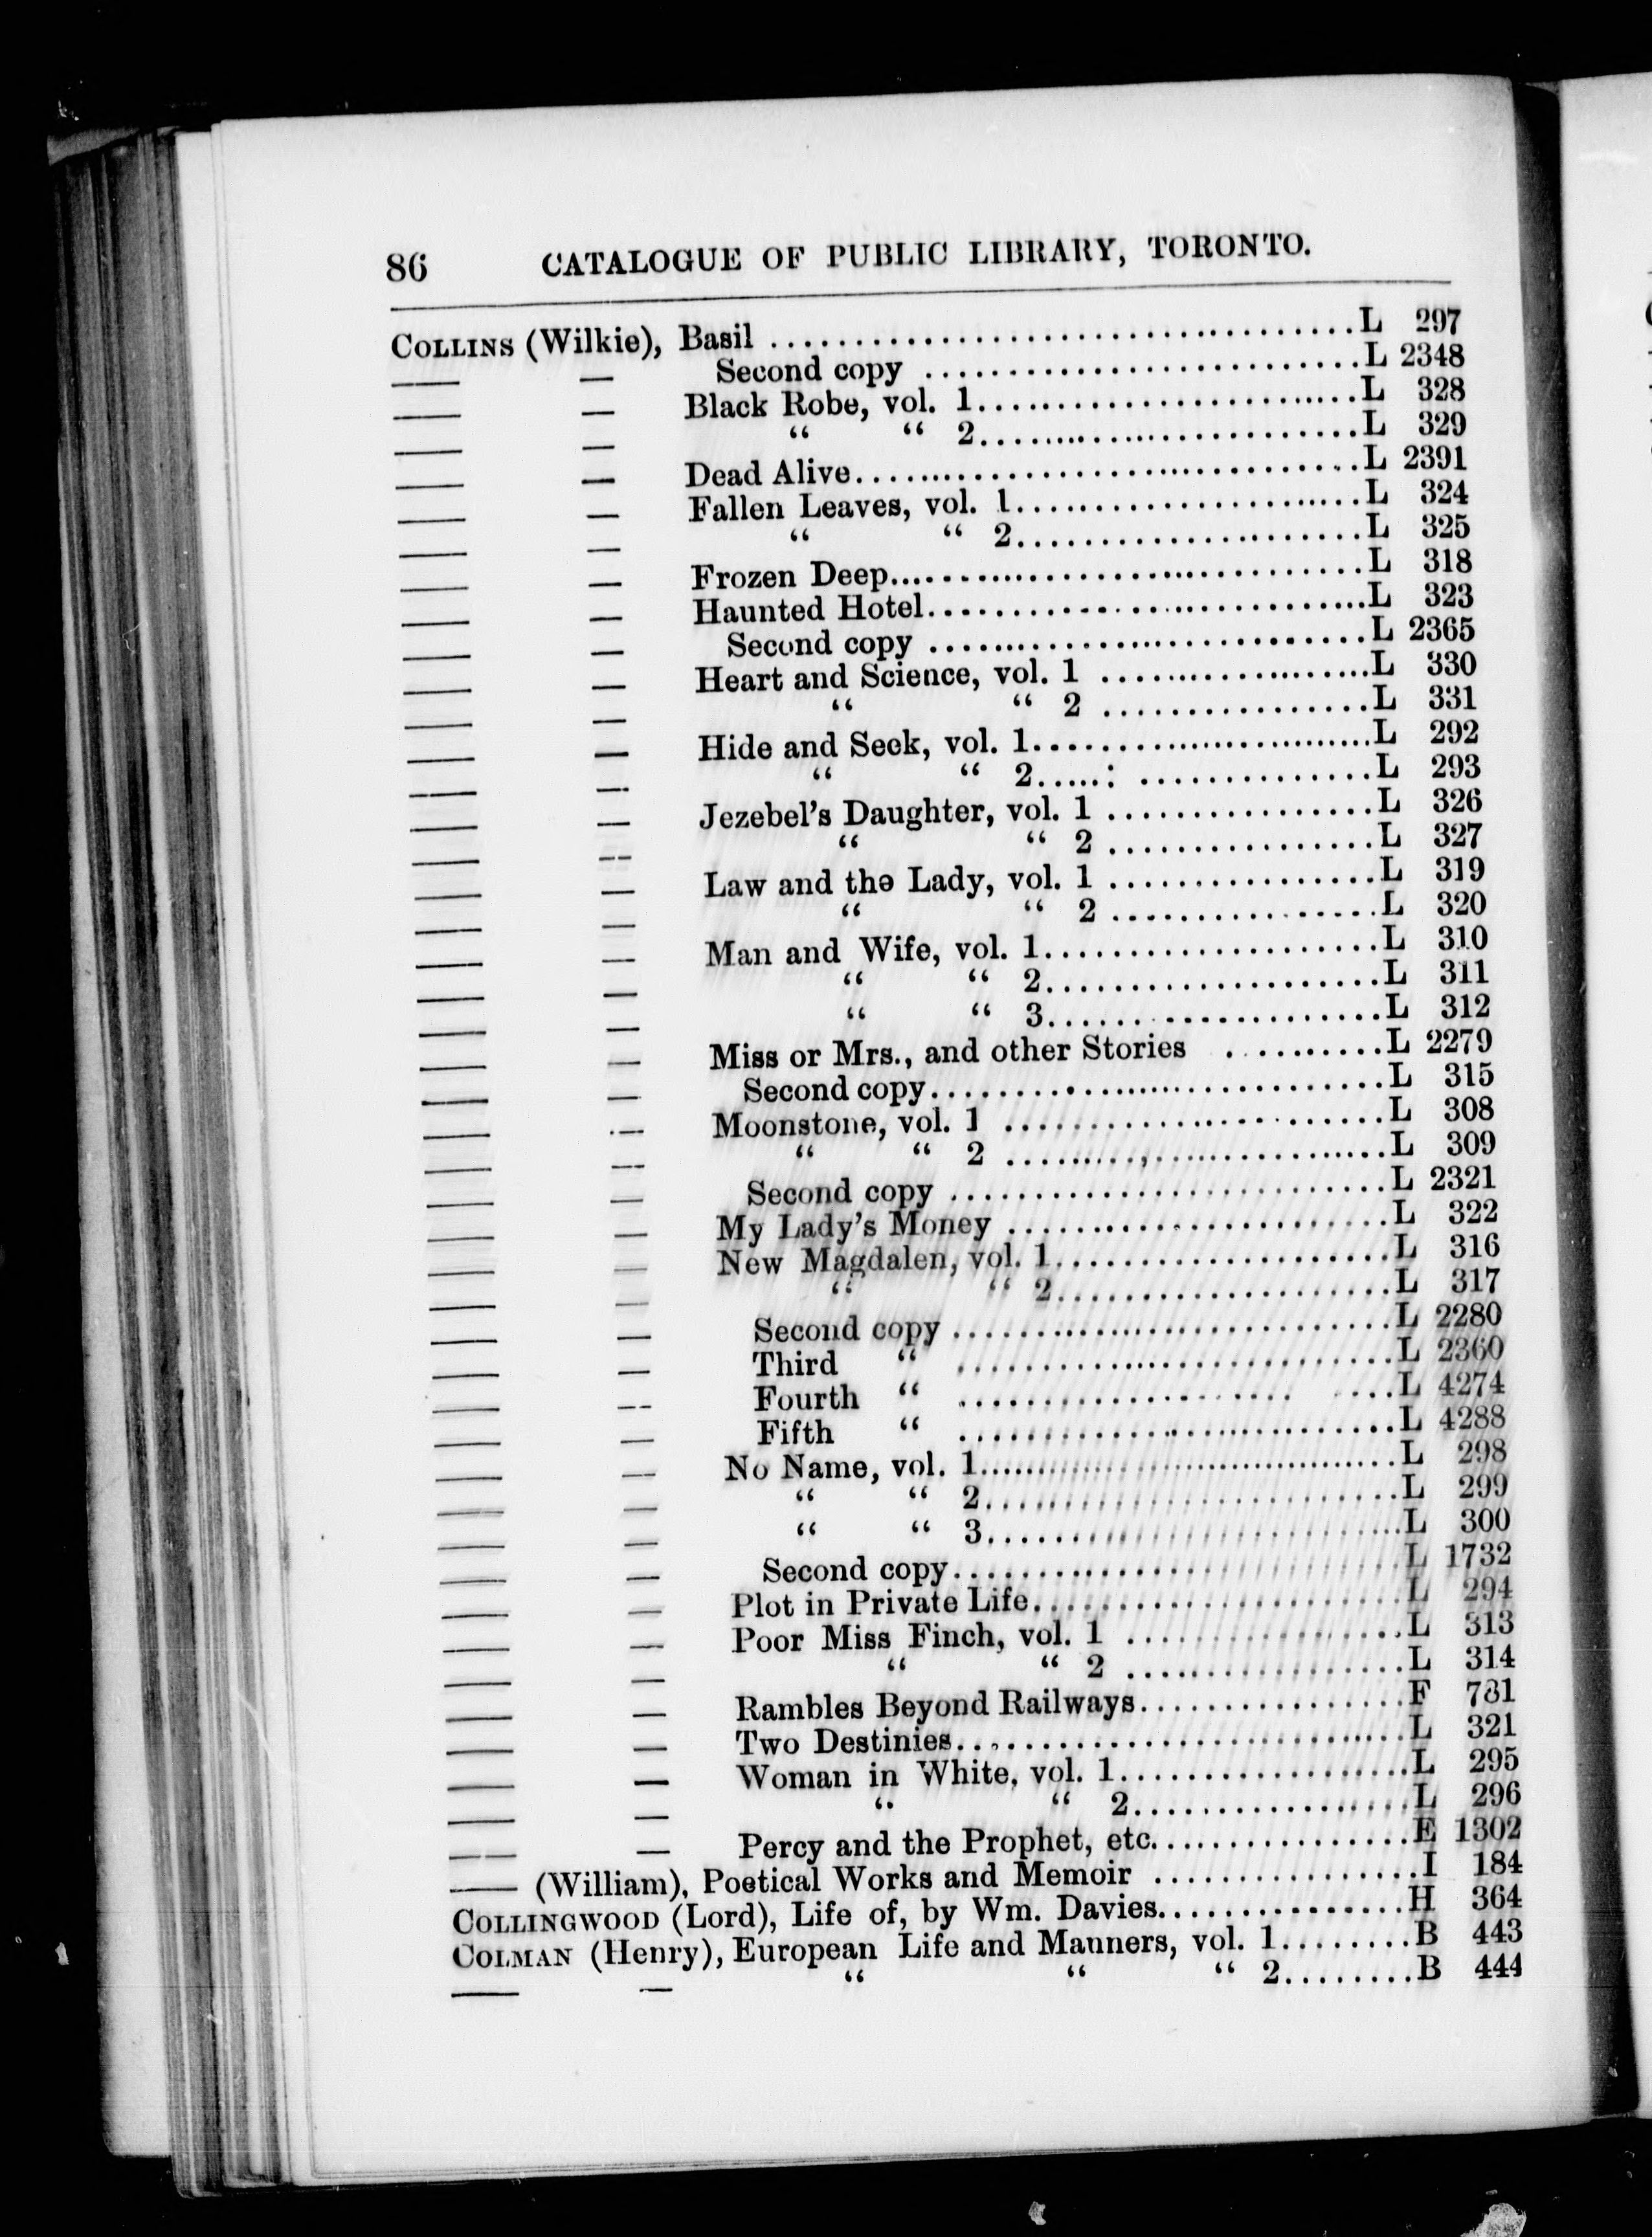 86 CATALOGUE OF PUBLIC LIBRARY, TORONTO.
COLLINS (Wilkie), Basil ........................................L 297
—— — Second copy ..............................L 2348
—— — Black Robe, vol. 1..........................L 328
—— — “ “ 2..........................L 329
—— — Dead Alive....................................L 2391
—— — Fallen Leaves, vol. 1........................L 324
—— — “ “ 2........................L 325
—— — Frozen Deep..................................L 318
—— — Haunted Hotel................................L 323
—— — Second copy ..............................L 2365
—— — Heart and Science, vol. 1 ...................L 330
—— — “ “ 2 ...................L 331
—— — Hide and Seek, vol. 1........................L 292
—— — “ “ 2.....: ................L 293
—— — Jezebel's Daughter, vol. 1 ..................L 326
—— — “ “ 2 ..................L 327
—— — Law and the Lady, vol. 1 ...................L 319
—— — “ “ 2 ...................L 320
—— — Man and Wife, vol. 1........................L 310
—— — “ “ 2........................L 311
—— — “ “ 3........................L 312
—— — Miss or Mrs., and other Stories ..........L 2279
—— — Second copy..............................L 315
—— — Moonstone, vol. 1 ..........................L 308
—— — “ “ 2 ..........................L 309
—— — Second copy ..............................L 2321
—— — My Lady's Money ..........................L 322
—— — New Magdalen, vol. 1.......................L 316
—— — “ “ 2.......................L 317
—— — Second copy ..............................L 2280
—— — Third “ ..............................L 2360
—— — Fourth “ ....................... ....L 4274
—— — Fifth “ ..............................L 4288
—— — No Name, vol. 1..............................L 298
—— — “ “ 2..............................L 299
—— — “ “ 3..............................L 300
—— — Second copy..............................L 1732
—— — Plot in Private Life..........................L 294
—— — Poor Miss Finch, vol. 1 ....................L 313
—— — “ “ 2 ....................L 314
—— — Rambles Beyond Railways...................F 731
—— — Two Destinies................................L 321
—— — Woman in White, vol. 1....................L 295
—— — “ “ 2....................L 296
—— — Percy and the Prophet, etc..................E 1302
—— (William), Poetical Works and Memoir ..................I 184
COLLINGWOOD (Lord), Life of, by Wm. Davies.................H 364
COLMAN (Henry), European Life and Manners, vol. 1.........B 443
—— — “ “ “ 2.........B 444